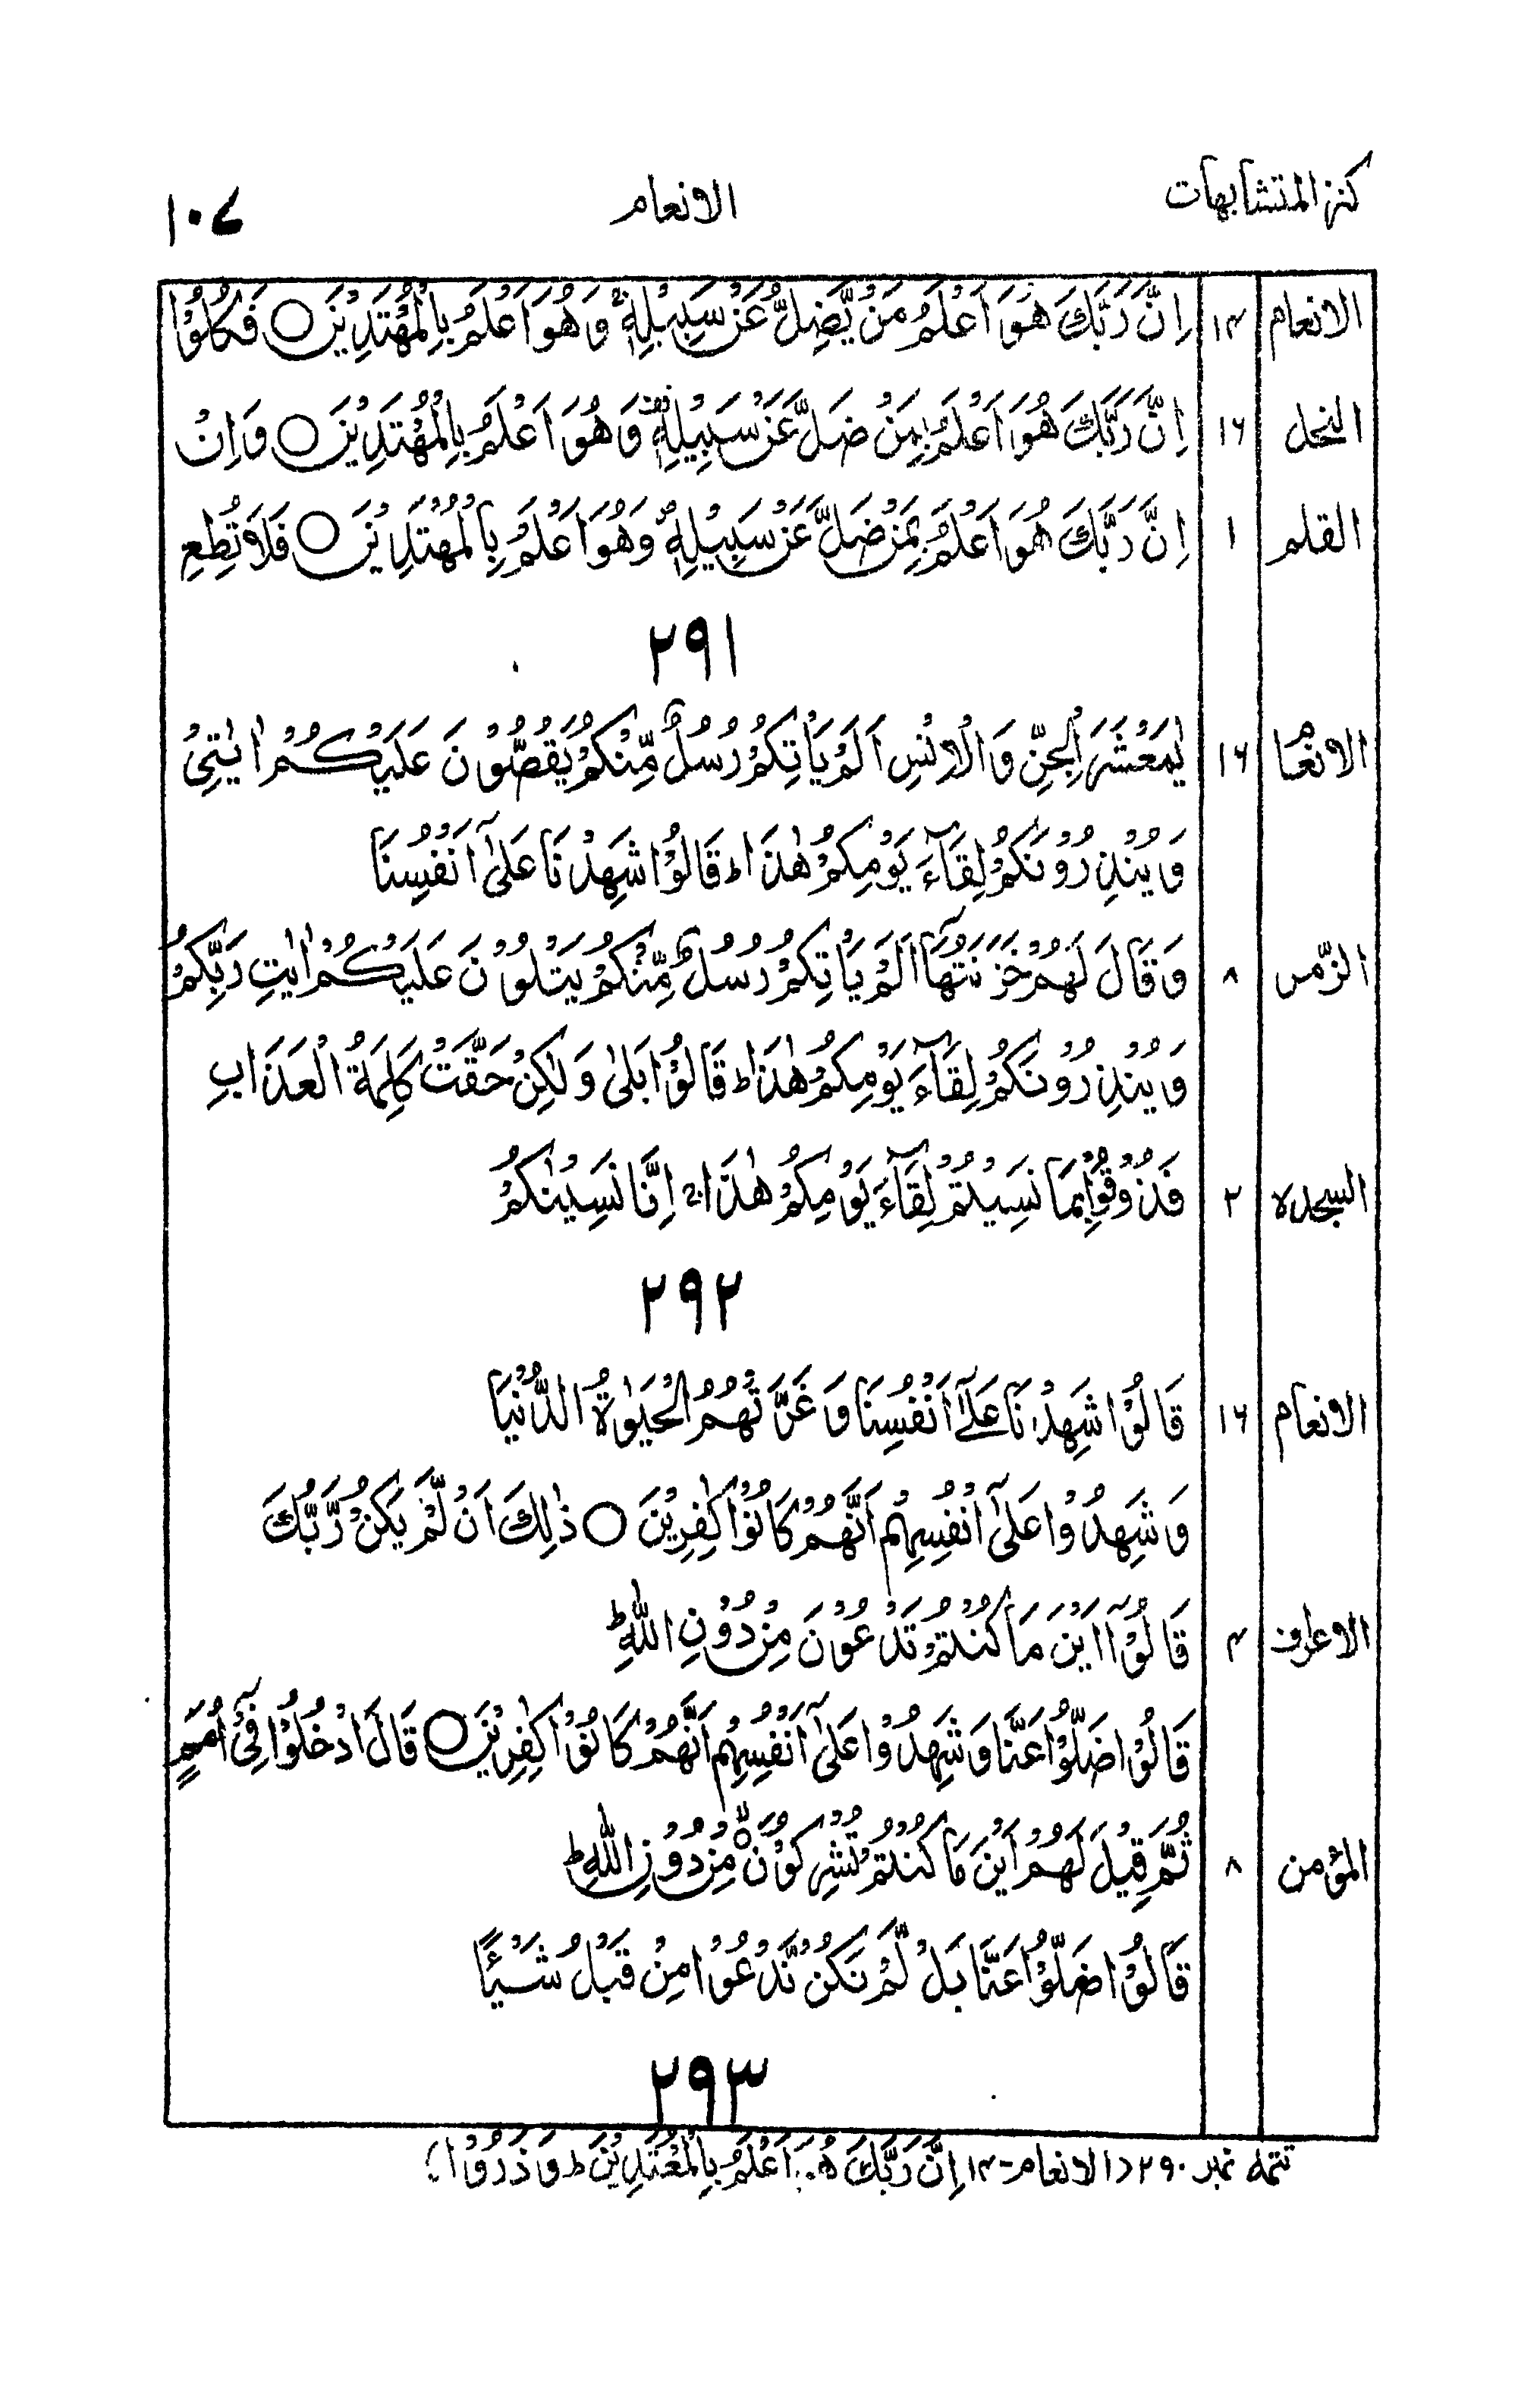 كنز المتشابهات الانعام ١٠٧
الانعام ١٤ اِنَّ رَبَّكَ هُوَ اَعْلَمُ مَنْ يَّضِلُّ عَنْ سَبِيْلِهٖ ۚ وَهُوَ اَعْلَمُ بِالْمُهْتَدِيْنَ ○ فَكُلُوْا
النحل ١٦ اِنَّ رَبَّكَ هُوَ اَعْلَمُ بِمَنْ ضَلَّ عَنْ سَبِيْلِهٖ وَهُوَ اَعْلَمُ بِالْمُهْتَدِيْنَ ○ وَاِنْ
القلم ١ اِنَّ رَبَّكَ هُوَ اَعْلَمُ بِمَنْ ضَلَّ عَنْ سَبِيْلِهٖ وَهُوَ اَعْلَمُ بِالْمُهْتَدِيْنَ ○ فَلَا تُطِعِ
٢٩١
الانعام ١٦ يٰمَعْشَرَ الْجِنِّ وَالْاِنْسِ اَلَمْ يَاْتِكُمْ رُسُلٌ مِّنْكُمْ يَقُصُّوْنَ عَلَيْكُمْ اٰيٰتِىْ
وَيُنْذِرُوْنَكُمْ لِقَآءَ يَوْمِكُمْ هٰذَا ؕ قَالُوْا شَهِدْنَا عَلٰٓى اَنْفُسِنَا
الزمر ٨ وَقَالَ لَهُمْ خَزَنَتُهَآ اَلَمْ يَاْتِكُمْ رُسُلٌ مِّنْكُمْ يَتْلُوْنَ عَلَيْكُمْ اٰيٰتِ رَبِّكُمْ
وَيُنْذِرُوْنَكُمْ لِقَآءَ يَوْمِكُمْ هٰذَا ؕ قَالُوْا بَلٰى وَلٰكِنْ حَقَّتْ كَلِمَةُ الْعَذَابِ
السجدة ٢ فَذُوْقُوْا بِمَا نَسِيْتُمْ لِقَآءَ يَوْمِكُمْ هٰذَا ۚ اِنَّا نَسِيْنٰكُمْ
٢٩٢
الانعام ١٦ قَالُوْا شَهِدْنَا عَلٰٓى اَنْفُسِنَا وَغَرَّتْهُمُ الْحَيٰوةُ الدُّنْيَا
وَشَهِدُوْا عَلٰٓى اَنْفُسِهِمْ اَنَّهُمْ كَانُوْا كٰفِرِيْنَ ○ ذٰلِكَ اَنْ لَّمْ يَكُنْ رَّبُّكَ
الاعراف ٤ قَالُوْٓا اَيْنَ مَا كُنْتُمْ تَدْعُوْنَ مِنْ دُوْنِ اللّٰهِ ؕ
قَالُوْا ضَلُّوْا عَنَّا وَشَهِدُوْا عَلٰٓى اَنْفُسِهِمْ اَنَّهُمْ كَانُوْا كٰفِرِيْنَ ○ قَالَ ادْخُلُوْا فِىْٓ اُمَمٍ
المؤمن ٨ ثُمَّ قِيْلَ لَهُمْ اَيْنَ مَا كُنْتُمْ تُشْرِكُوْنَ مِنْ دُوْنِ اللّٰهِ ؕ
قَالُوْا ضَلُّوْا عَنَّا بَلْ لَّمْ نَكُنْ نَّدْعُوْا مِنْ قَبْلُ شَيْئًا
٢٩٣
تتمه نمبر ٢٩٠ (الانعام-١٤ اِنَّ رَبَّكَ هُوَ اَعْلَمُ بِالْمُعْتَدِيْنَ ؕ وَذَرُوْا)